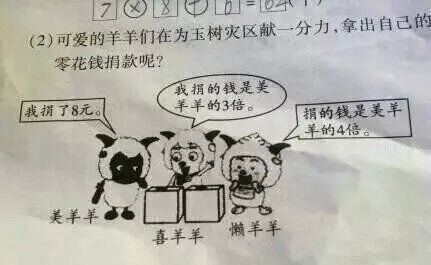 7×8+6=62(个)
(2)可爱的羊羊们在为玉树灾区献一分力,拿出自己的
零花钱捐款呢?
我捐了8元。
我捐的钱是美
羊羊的3倍。
捐的钱是美羊
羊的4倍。
美羊羊
喜羊羊
懒羊羊